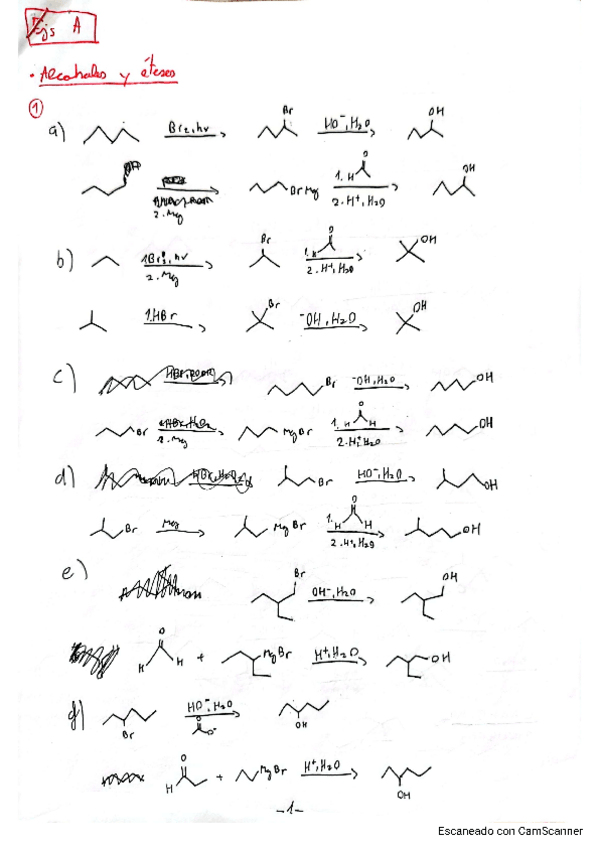 Ejs A
· Alcoholes y éteres
①
a) Br₂, hν Br HO⁻, H₂O OH
2. Mg BrMg 1. H O 2. H⁺, H₂O OH
b) 1. Br₂, hν 2. Mg Br 1. O 2. H⁺, H₂O OH
1. HBr Br ⁻OH, H₂O OH
c) Br ⁻OH, H₂O OH
Br 2. Mg MgBr 1. H O H 2. H⁺, H₂O OH
d) Br HO⁻, H₂O OH
Br Mg MgBr 1. H O H 2. H⁺, H₂O OH
e) Br OH⁻, H₂O OH
H O H + MgBr H⁺, H₂O OH
Br HO⁻, H₂O O O⁻ OH
H O + MgBr H⁺, H₂O OH
-1-
Escaneado con CamScanner